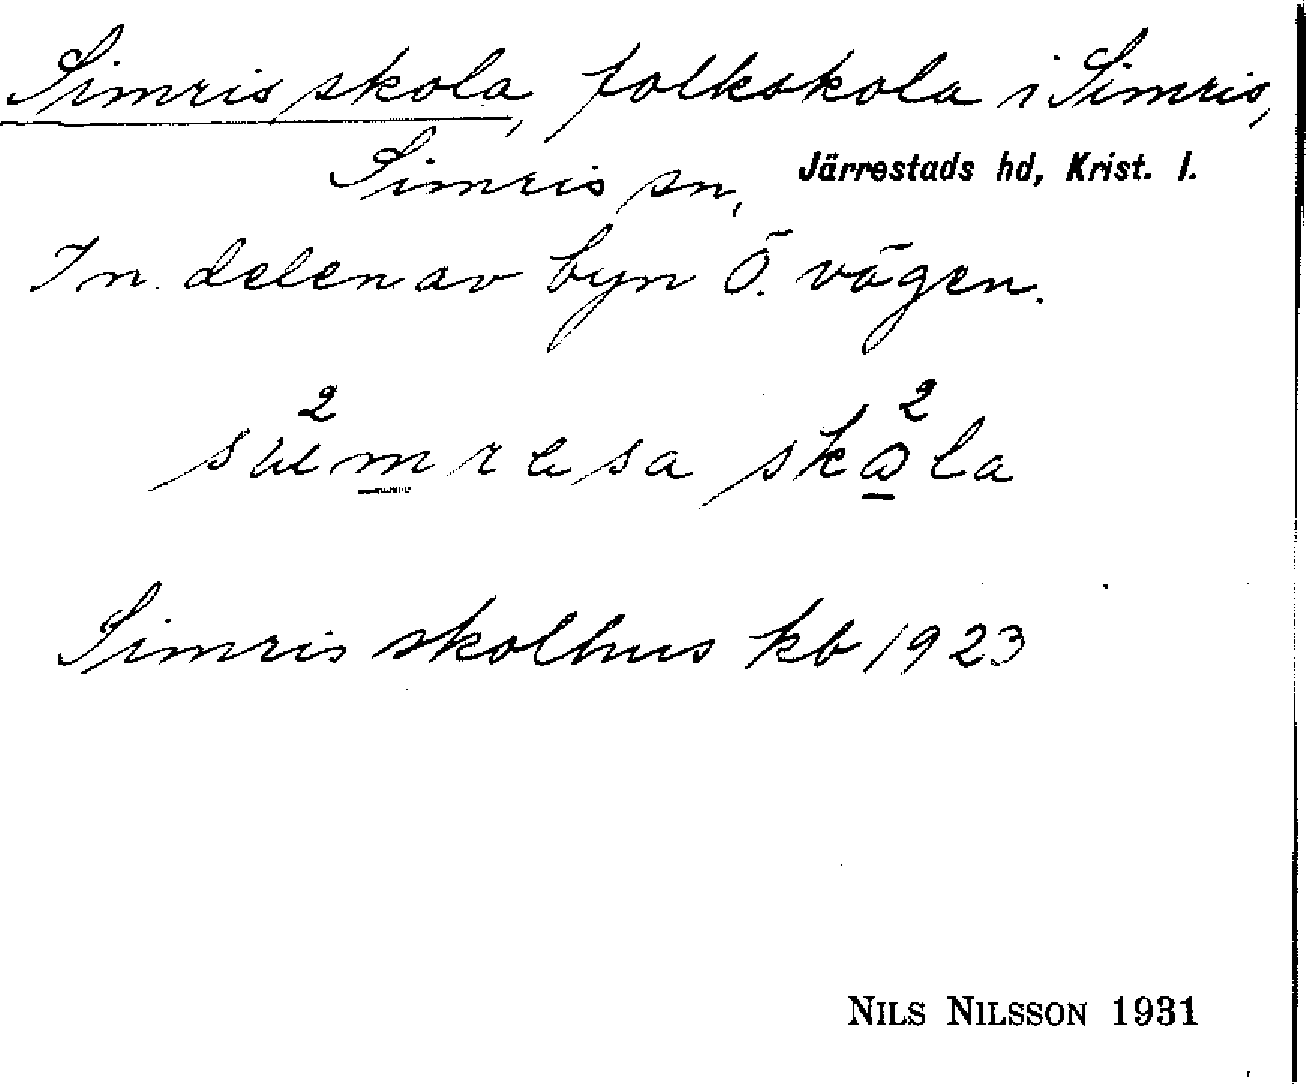 Simris skola, folkskola i Simris,
Simris sn, Järrestads hd, Krist. l.
I n. delen av byn Ö. vägen.
skola
Simris skolhus kb 1923
NILS NILSSON 1931